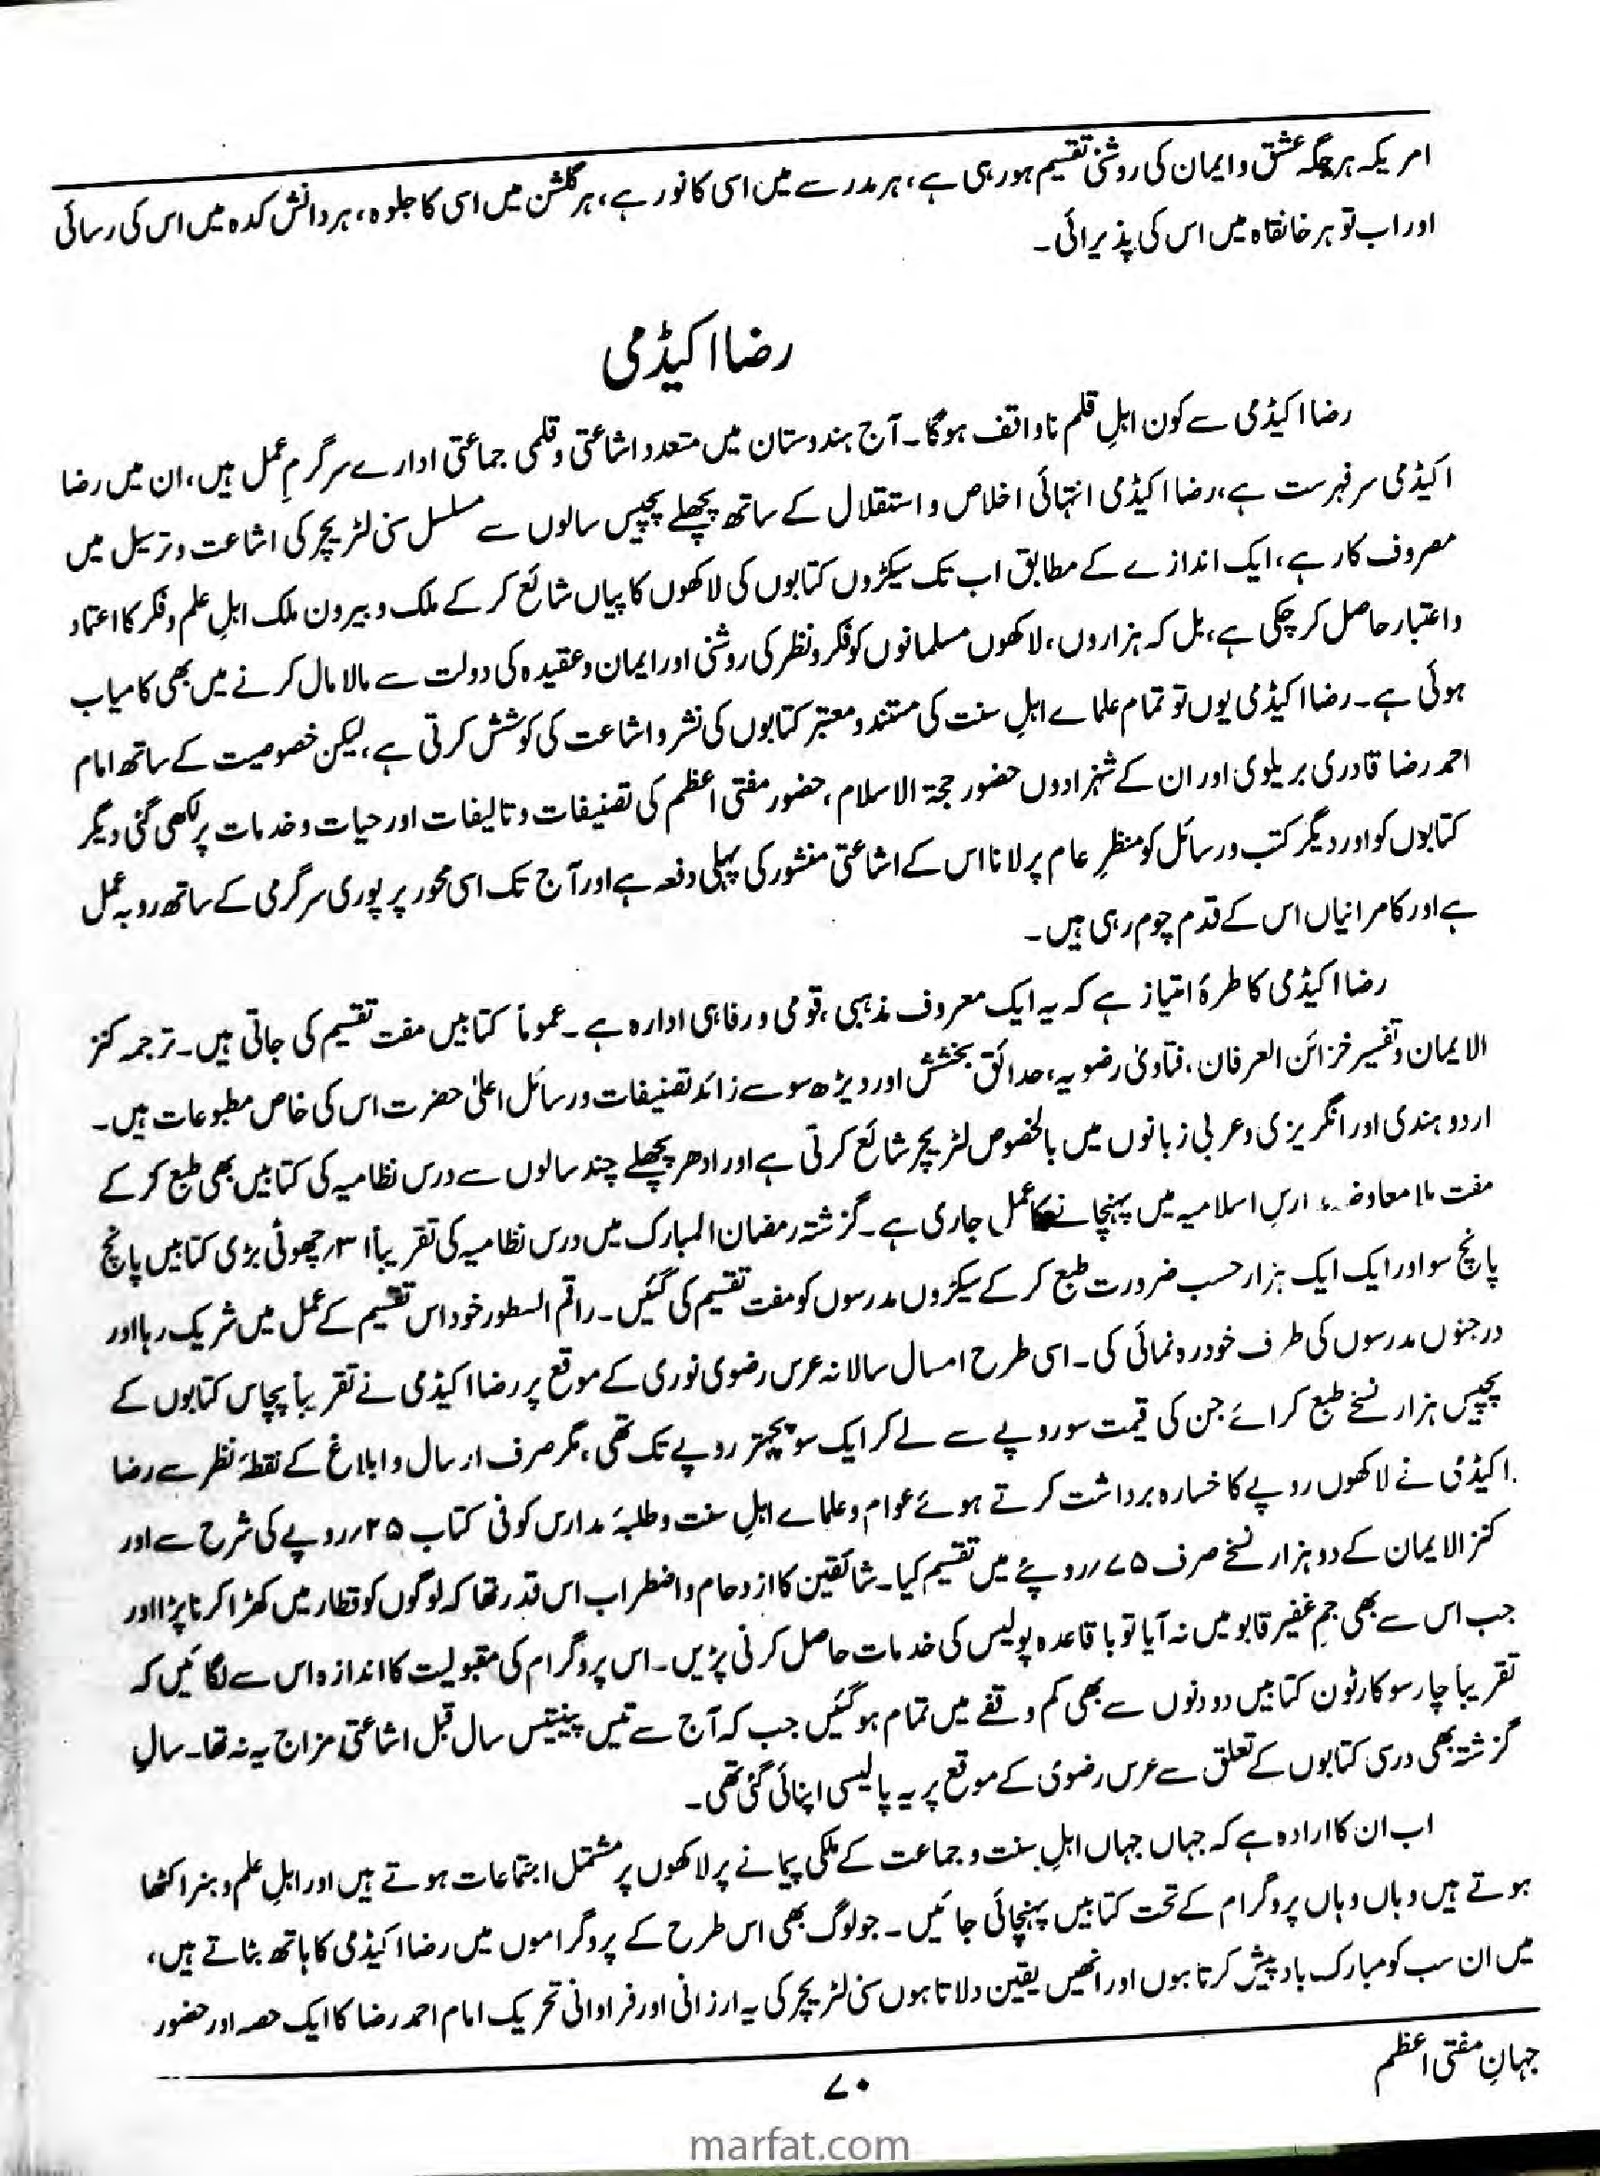 امریکہ ہر جگہ عشق و ایمان کی روشنی تقسیم ہو رہی ہے، ہر مدرسے میں اسی کا نور ہے، ہر گلشن میں اسی کا جلوہ، ہر دانش کدہ میں اس کی رسائی
اور اب تو ہر خانقاہ میں اس کی پذیرائی۔
رضا اکیڈمی
رضا اکیڈمی سے کون اہلِ قلم ناواقف ہوگا۔ آج ہندوستان میں متعدد اشاعتی و قلمی جماعتی ادارے سرگرمِ عمل ہیں، ان میں رضا
اکیڈمی سرفہرست ہے، رضا اکیڈمی انتہائی اخلاص و استقلال کے ساتھ پچھلے پچیس سالوں سے مسلسل سنی لٹریچر کی اشاعت و ترسیل میں
مصروف کار ہے، ایک اندازے کے مطابق اب تک سیکڑوں کتابوں کی لاکھوں کاپیاں شائع کر کے ملک و بیرون ملک اہلِ علم و فکر کا اعتماد
و اعتبار حاصل کر چکی ہے، بل کہ ہزاروں، لاکھوں مسلمانوں کو فکر و نظر کی روشنی اور ایمان و عقیدہ کی دولت سے مالا مال کرنے میں بھی کامیاب
ہوئی ہے۔ رضا اکیڈمی یوں تو تمام علماے اہلِ سنت کی مستند و معتبر کتابوں کی نشر و اشاعت کی کوشش کرتی ہے، لیکن خصوصیت کے ساتھ امام
احمد رضا قادری بریلوی اور ان کے شہزادوں حضور حجۃ الاسلام، حضور مفتی اعظم کی تصنیفات و تالیفات اور حیات و خدمات پر لکھی گئی دیگر
کتابوں کو اور دیگر کتب و رسائل کو منظرِ عام پر لانا اس کے اشاعتی منشور کی پہلی دفعہ ہے اور آج تک اسی محور پر پوری سرگرمی کے ساتھ رو بہ عمل
ہے اور کامرانیاں اس کے قدم چوم رہی ہیں۔
رضا اکیڈمی کا طرۂ امتیاز ہے کہ یہ ایک معروف مذہبی، قومی و رفاہی ادارہ ہے۔ عموماً کتابیں مفت تقسیم کی جاتی ہیں۔ ترجمہ کنز
الایمان و تفسیر خزائن العرفان، فتاویٰ رضویہ، حدائق بخشش اور دیڑھ سو سے زائد تصنیفات و رسائل اعلیٰ حضرت اس کی خاص مطبوعات ہیں۔
اردو ہندی اور انگریزی و عربی زبانوں میں بالخصوص لٹریچر شائع کرتی ہے اور ادھر پچھلے چند سالوں سے درس نظامیہ کی کتابیں بھی طبع کر کے
مفت بلا معاوضہ ارسِ اسلامیہ میں پہنچانے کا عمل جاری ہے۔ گزشتہ رمضان المبارک میں درس نظامیہ کی تقریباً ۳۱؍ چھوٹی بڑی کتابیں پانچ
پانچ سو اور ایک ایک ہزار حسب ضرورت طبع کر کے سیکڑوں مدرسوں کو مفت تقسیم کی گئیں۔ راقم السطور خود اس تقسیم کے عمل میں شریک رہا اور
درجنوں مدرسوں کی طرف خود رہ نمائی کی۔ اسی طرح امسال سالانہ عرس رضوی نوری کے موقع پر رضا اکیڈمی نے تقریباً پچاس کتابوں کے
پچیس ہزار نسخے طبع کرائے جن کی قیمت سو روپے سے لے کر ایک سو پچہتر روپے تک تھی، مگر صرف ارسال و ابلاغ کے نقطۂ نظر سے رضا
اکیڈمی نے لاکھوں روپے کا خسارہ برداشت کرتے ہوئے عوام و علماے اہلِ سنت و طلبۂ مدارس کو فی کتاب ۲۵؍ روپے کی شرح سے اور
کنز الایمان کے دو ہزار نسخے صرف ۷۵؍ روپئے میں تقسیم کیا۔ شائقین کا ازدحام و اضطراب اس قدر تھا کہ لوگوں کو قطار میں کھڑا کرنا پڑا اور
جب اس سے بھی جمِ غفیر قابو میں نہ آیا تو باقاعدہ پولیس کی خدمات حاصل کرنی پڑیں۔ اس پروگرام کی مقبولیت کا اندازہ اس سے لگائیں کہ
تقریباً چار سو کارٹون کتابیں دو دنوں سے بھی کم وقفے میں تمام ہو گئیں جب کہ آج سے تیس پینتیس سال قبل اشاعتی مزاج یہ نہ تھا۔ سالِ
گزشتہ بھی درسی کتابوں کے تعلق سے عرس رضوی کے موقع پر یہ پالیسی اپنائی گئی تھی۔
اب ان کا ارادہ ہے کہ جہاں جہاں اہلِ سنت و جماعت کے ملکی پیمانے پر لاکھوں پر مشتمل اجتماعات ہوتے ہیں اور اہلِ علم و ہنر اکٹھا
ہوتے ہیں وہاں وہاں پروگرام کے تحت کتابیں پہنچائی جائیں۔ جو لوگ بھی اس طرح کے پروگراموں میں رضا اکیڈمی کا ہاتھ بٹاتے ہیں،
میں ان سب کو مبارک باد پیش کرتا ہوں اور انھیں یقین دلاتا ہوں سنی لٹریچر کی یہ ارزانی اور فراوانی تحریک امام احمد رضا کا ایک حصہ اور حضور
جہانِ مفتی اعظم
۷۰
marfat.com